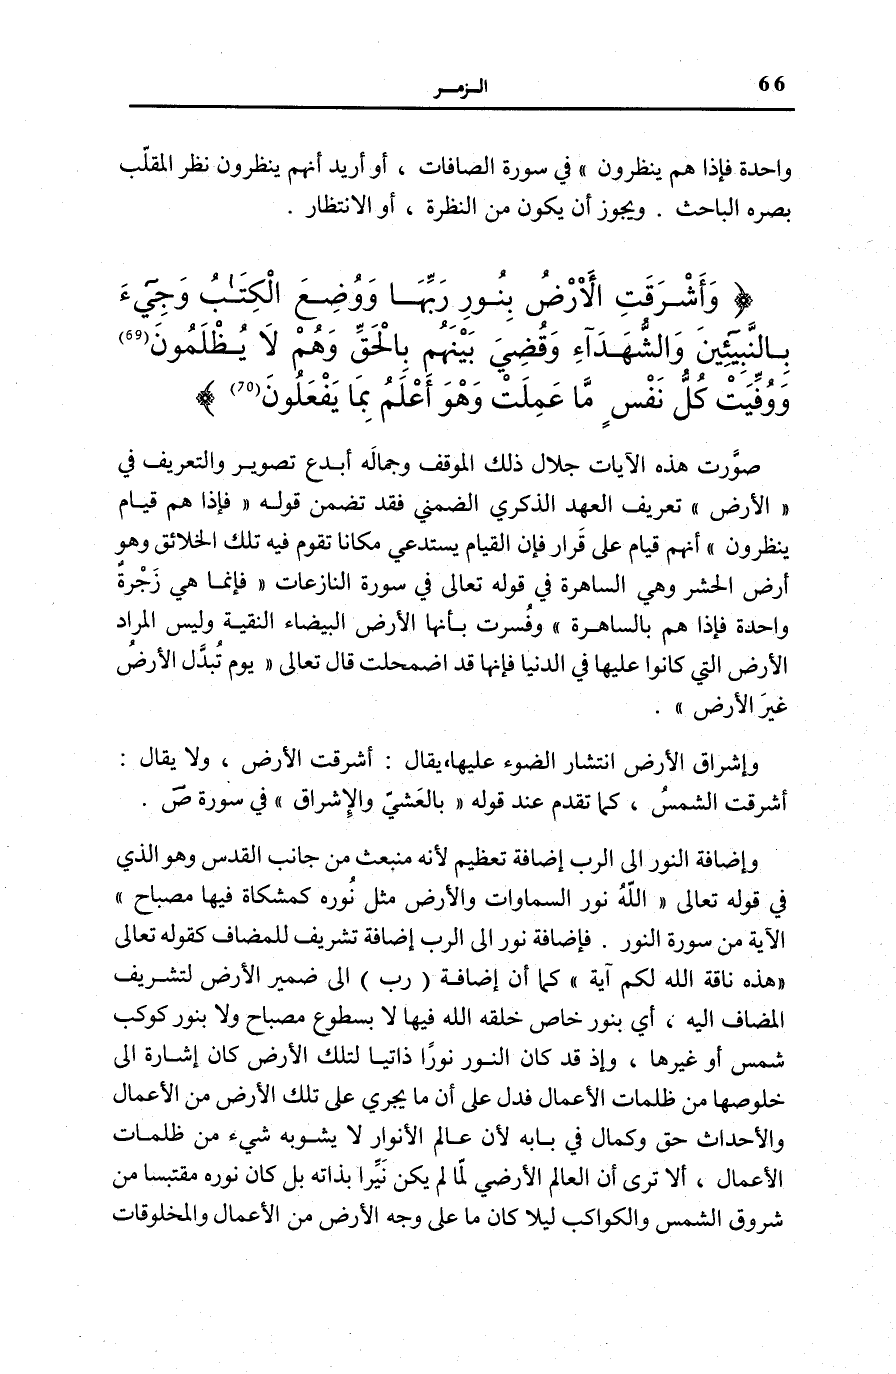 66
الـزمـر
واحدة فإذا هم ينظرون » في سورة الصافات ، أو أريد أنهم ينظرون نظر المقلّب
بصره الباحث . ويجوز أن يكون من النظرة ، أو الانتظار .
﴿ وَأَشْرَقَتِ الْأَرْضُ بِنُورِ رَبِّهَا وَوُضِعَ الْكِتَٰبُ وَجِيٓءَ
بِالنَّبِيٓـِٔينَ وَالشُّهَدَآءِ وَقُضِيَ بَيْنَهُم بِالْحَقِّ وَهُمْ لَا يُظْلَمُونَ(69)
وَوُفِّيَتْ كُلُّ نَفْسٍ مَّا عَمِلَتْ وَهْوَ أَعْلَمُ بِمَا يَفْعَلُونَ(70) ﴾
صوَّرت هذه الآيات جلال ذلك الموقف وجمالَه أبـدع تصويـر والتعريف في
« الأرض » تعريف العهد الذكري الضمني فقد تضمن قولـه « فإذا هم قيـام
ينظرون » أنهم قيام على قَرار فإن القيام يستدعي مكانا تقوم فيه تلك الخلائق وهو
أرض الحشر وهي الساهرة في قوله تعالى في سورة النازعات « فإنمـا هي زَجْرةٌ
واحدة فإذا هم بالساهـرة » وفُسرت بـأنها الأرض البيضاء النقيـة وليس المراد
الأرض التي كانوا عليها في الدنيا فإنها قد اضمحلت قال تعالى « يوم تُبدَّل الأرضُ
غيرَ الأرض » .
وإشراق الأرض انتشار الضوء عليها،يقال : أشرقت الأرض ، ولا يقال :
أشرقت الشمسُ ، كما تقدم عند قوله « بالعَشيّ والإشراق » في سورة صٓ .
وإضافة النور الى الرب إضافة تعظيم لأنه منبعث من جانب القدس وهو الذي
في قوله تعالى « اللّهُ نور السماوات والأرض مثل نُوره كمشكاة فيها مصباح »
الآية من سورة النور . فإضافة نور الى الرب إضافة تشريف للمضاف كقوله تعالى
«هذه ناقة الله لكم آية » كما أن إضافـة ( رب ) الى ضمير الأرض لتشـريف
المضاف اليه ، أي بنور خاص خلقه الله فيها لا بسطوع مصباح ولا بنور كوكب
شمس أو غيرها ، وإذ قد كان النـور نورًا ذاتيـا لتلك الأرض كان إشـارة الى
خلوصها من ظلمات الأعمال فدل على أن ما يجري على تلك الأرض من الأعمال
والأحداث حق وكمال في بـابه لأن عـالم الأنوار لا يشـوبه شيء من ظلمـات
الأعمال ، ألا ترى أن العالم الأرضي لمّا لم يكن نَيِّرا بذاته بل كان نوره مقتبسا من
شروق الشمس والكواكب ليلا كان ما على وجه الأرض من الأعمال والمخلوقات